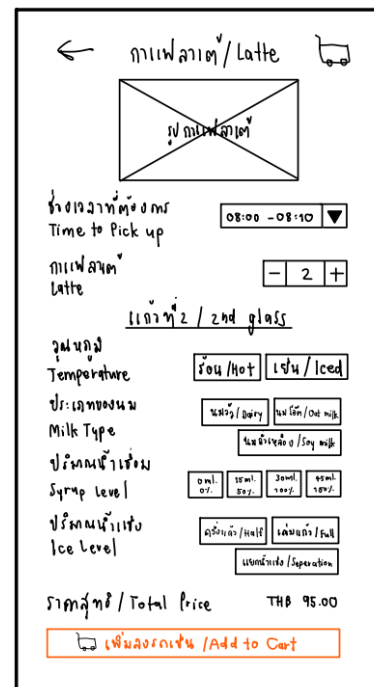 กาแฟลาเต้ / Latte
รูปกาแฟลาเต้
ช่วงเวลาที่ต้องการ
Time to Pick up
08:00 - 08:10
กาแฟลาเต้
Latte
- 2 +
แก้วที่ 2 / 2nd glass
อุณหภูมิ
Temperature
ร้อน/Hot
เย็น/Iced
ประเภทของนม
Milk Type
นมวัว/Dairy
นมโอ๊ต/Oat milk
นมถั่วเหลือง/Soy milk
ปริมาณน้ำเชื่อม
Syrup Level
0 ml. 0%.
15ml. 50%.
30ml. 100%.
45ml. 150%.
ปริมาณน้ำแข็ง
Ice Level
ครึ่งแก้ว/Half
เต็มแก้ว/Full
แยกน้ำแข็ง/Seperation
ราคาสุทธิ / Total Price
THB 95.00
เพิ่มลงรถเข็น /Add to Cart